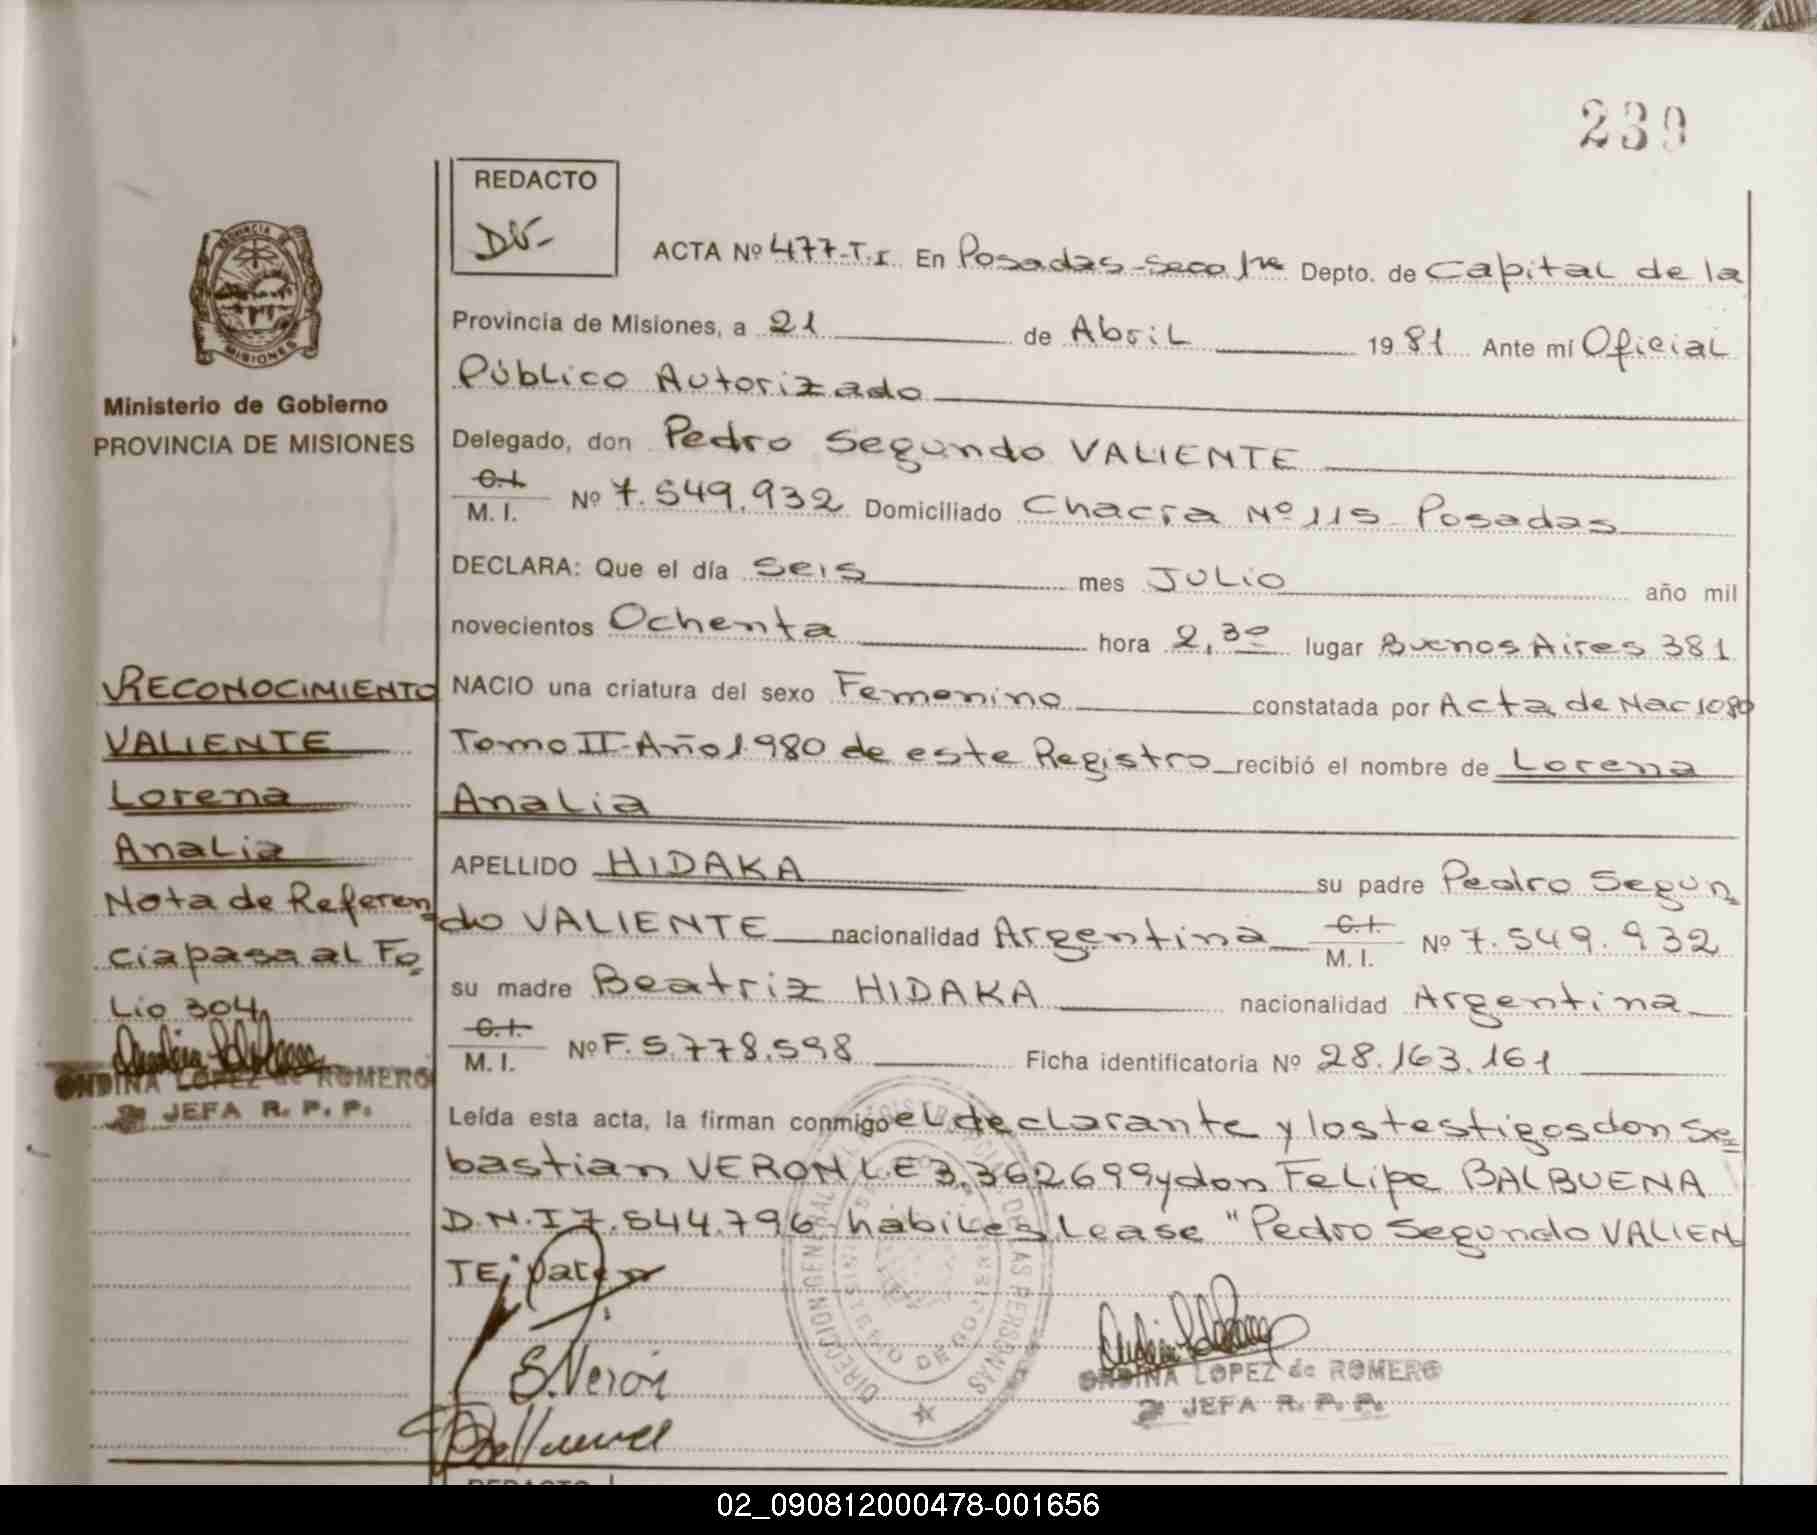 239
REDACTO
DV-
ACTA Nº 477-T.I. En Posadas-Secc 1ra Depto. de Capital de la
Provincia de Misiones, a 21 de Abril 1981 Ante mí Oficial
Público Autorizado
Delegado, don Pedro Segundo VALIENTE
C.I.
M. I. Nº 7.549.932 Domiciliado Chacra Nº 115 - Posadas
DECLARA: Que el día Seis mes JULIO año mil
novecientos Ochenta hora 2,30 lugar Buenos Aires 381
NACIO una criatura del sexo Femenino constatada por Acta de Nac 1080
Tomo II-Año 1.980 de este Registro recibió el nombre de Lorena
Analia
APELLIDO HIDAKA su padre Pedro Segun
do VALIENTE nacionalidad Argentina C.I. M. I. Nº 7.549.932
su madre Beatriz HIDAKA nacionalidad Argentina
C.I.
M. I. Nº F.5.778.598 Ficha identificatoria Nº 28.163.161
Leída esta acta, la firman conmigo el declarante y los testigos don Se
bastian VERON L.E 3.362699 y don Felipe BALBUENA
D.N.I 7.544.796 habiles, Lease "Pedro Segundo VALIEN
TE;
S. Veron
ONDINA LOPEZ de ROMERO
JEFA R. P. P.
DIRECCION GENERAL DEL REGISTRO CIVIL DE LAS PERSONAS
MINISTERIO DE GOBIERNO
PROVINCIA DE
MISIONES
Ministerio de Gobierno
PROVINCIA DE MISIONES
RECONOCIMIENTO
VALIENTE
Lorena
Analia
Nota de Referen
cia pasa al Fo
Lio 304
ONDINA LOPEZ de ROMERO
JEFA R. P. P.
REDACTO
02_090812000478-001656